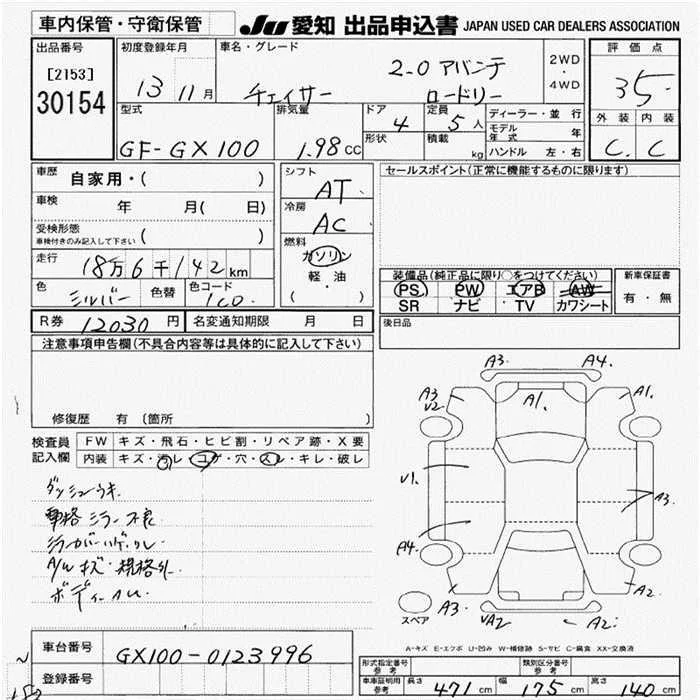 車内保管・守衛保管
JU 愛知 出品申込書 JAPAN USED CAR DEALERS ASSOCIATION
出品番号
[2153]
30154
初度登録年月
13 11月
車名・グレード
チェイサー
2.0 アバンテ
ロードリー
2WD
・
4WD
評価点
35
外装 内装
C. C
型式
GF-GX100
排気量
1.98 CC
ドア
4
形状
定員
5人
積載
kg
ディーラー・並行
モデル年式 年
ハンドル 左・右
車歴
自家用・( )
車検
年 月( 日)
受検形態
車検付きのみ記入して下さい ( )
走行
18万6千142km
色
シルバー
色替
色コード
1C0
シフト
AT
冷房
AC
燃料
ガソリン
軽・油
( ・ )
セールスポイント(正常に機能するものに限ります)
装備品(純正品に限り○をつけてください)
PS PW エアB AW
SR ナビ TV カワシート
新車保証書
有・無
R券 12030円
名変通知期限 月 日
後日品
注意事項申告欄(不具合内容等は具体的に記入して下さい)
修復歴 有 〔箇所 〕
検査員
記入欄
FW キズ・飛石・ヒビ割・リペア跡・X要
内装 キズ・汚レ・コゲ・穴・スレ・キレ・破レ
ダッシュウキ
車格ミラー不良
ミラーカバーハゲ・ワレ
A/Wキズ・規格外
ボディーAU
A3. A4.
A3
V2
A1.
A1.
V1.
A3.
A4.
A3. VA2 A2. A2
スペア
A-キズ E-エクボ U-凹み W-補修跡 S-サビ C-腐食 XX-交換済
車台番号
GX100-0123996
登録番号
形式指定番号
参考
類別区分番号
参考
車庫証明用
参考
長さ 471 cm
幅 175 cm
高さ 140 cm